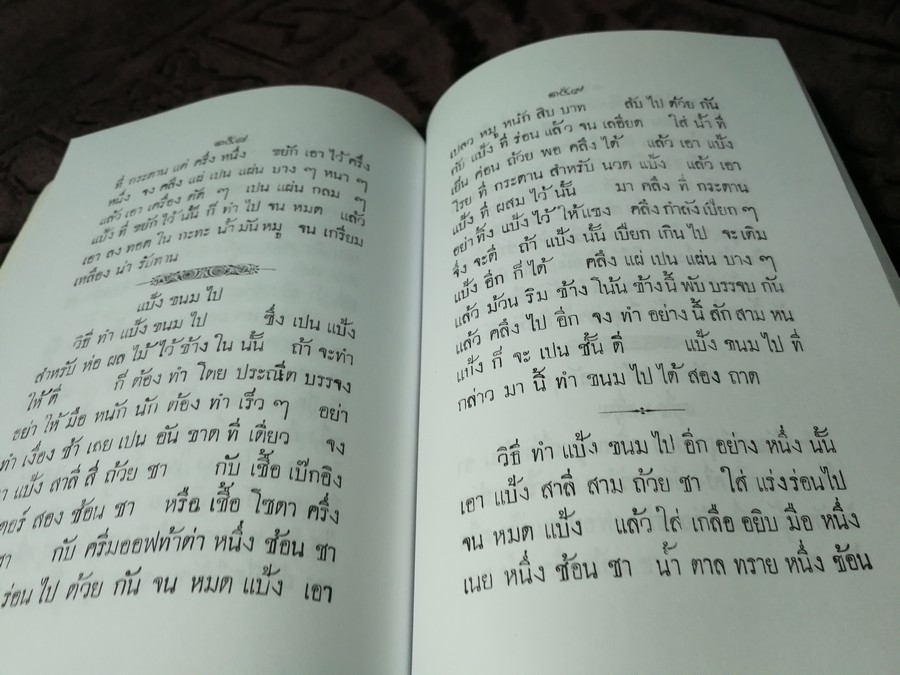 ๑๕๘
ที่ กระดาน แต่ ครึ่ง หนึ่ง ขยัก เอา ไว้ ครึ่ง
หนึ่ง จง คลึง แผ่ เปน แผ่น บาง ๆ หนา ๆ
แล้ว เอา เครื่อง ตัด ๆ เปน แผ่น กลม ๆ
แป้ง ที่ ขยัก ไว้ นั้น ก็ ทำ ไป จน หมด แล้ว
เอา ลง ทอด ใน กะทะ น้ำ มัน หมู จน เกรียม
เหลือง น่า รับทาน
แป้ง ขนม ไป
วิธี ทำ แป้ง ขนม ไป ซึ่ง เปน แป้ง
สำหรับ ห่อ ผล ไม้ ไว้ ข้าง ใน นั้น ถ้า จะทำ
ให้ ดี ก็ ต้อง ทำ โดย ประณีต บรรจง
อย่า ให้ มือ หนัก นัก ต้อง ทำ เร็ว ๆ อย่า
ทำ เงื่อง ช้า เลย เปน อัน ขาด ที่ เดียว จง
แป้ง สาลี สี่ ถ้วย ชา กับ เชื้อ เบ๊กอิง
เตอร์ สอง ช้อน ชา หรือ เชื้อ โซดา ครึ่ง
ชา กับ ครีมออฟท้าต่า หนึ่ง ช้อน ชา
ร่อน ไป ด้วย กัน จน หมด แป้ง เอา
๑๕๙
เปลว หมู หนัก สิบ บาท สับ ไป ด้วย กัน
กับ แป้ง ที่ ร่อน แล้ว จน เลอียด ใส่ น้ำ ที่
เย็น ค่อน ถ้วย พอ คลึง ได้ แล้ว เอา แป้ง
โรย ที่ กระดาน สำหรับ นวด แป้ง แล้ว เอา
แป้ง ที่ ผสม ไว้ นั้น มา คลึง ที่ กระดาน
อย่า ทิ้ง แป้ง ไว้ ให้ แขง คลึง กำลัง เปียก ๆ
จึ่ง จะดี ถ้า แป้ง นั้น เปียก เกิน ไป จะเติม
แป้ง อีก ก็ ได้ คลึง แผ่ เปน แผ่น บาง ๆ
แล้ว ม้วน ริม ข้าง โน้น ข้าง นี้ พับ บรรจบ กัน
แล้ว คลึง ไป อีก จง ทำ อย่าง นี้ สัก สาม หน
แป้ง ก็ จะ เปน ชั้น ดี แป้ง ขนม ไป ที่
กล่าว มา นี้ ทำ ขนม ไป ได้ สอง ถาด
วิธี ทำ แป้ง ขนม ไป อีก อย่าง หนึ่ง นั้น
เอา แป้ง สาลี สาม ถ้วย ชา ใส่ แร่งร่อนไป
จน หมด แป้ง แล้ว ใส่ เกลือ อยิบ มือ หนึ่ง
เนย หนึ่ง ช้อน ชา น้ำ ตาล ทราย หนึ่ง ช้อน